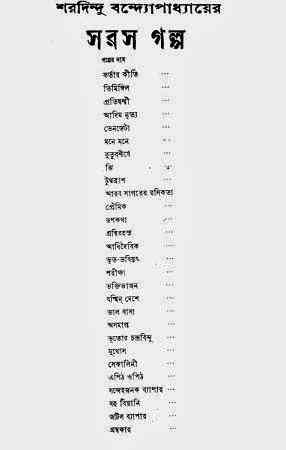 শরদিন্দু বন্দ্যোপাধ্যায়ের
সরস গল্প
গল্পের নাম
কর্তার কীর্তি ...
তিমিঙ্গিল ...
প্রতিদ্বন্দ্বী ...
আদিম নৃত্য ...
ভেনডেটা ...
মনে মনে ...
কুতুবশীর্ষে ...
ঝি
টুথব্রাশ ...
আরব সাগরের রসিকতা
প্রেমিক ...
রূপকথা ...
গ্রন্থিরহস্য ...
আধিদৈবিক ...
ভূত-ভবিষ্যৎ ...
পরীক্ষা ...
ভক্তিভাজন ...
যস্মিন্ দেশে ...
ভাল বাসা ...
অসমাপ্ত ...
ভূতোর চন্দ্রবিন্দু ...
মুখোস ...
সেকালিনী ...
এপিঠ ওপিঠ ...
সন্দেহজনক ব্যাপার ...
বহু বিঘ্নানি ...
জটিল ব্যাপার ...
গ্রন্থকার ...